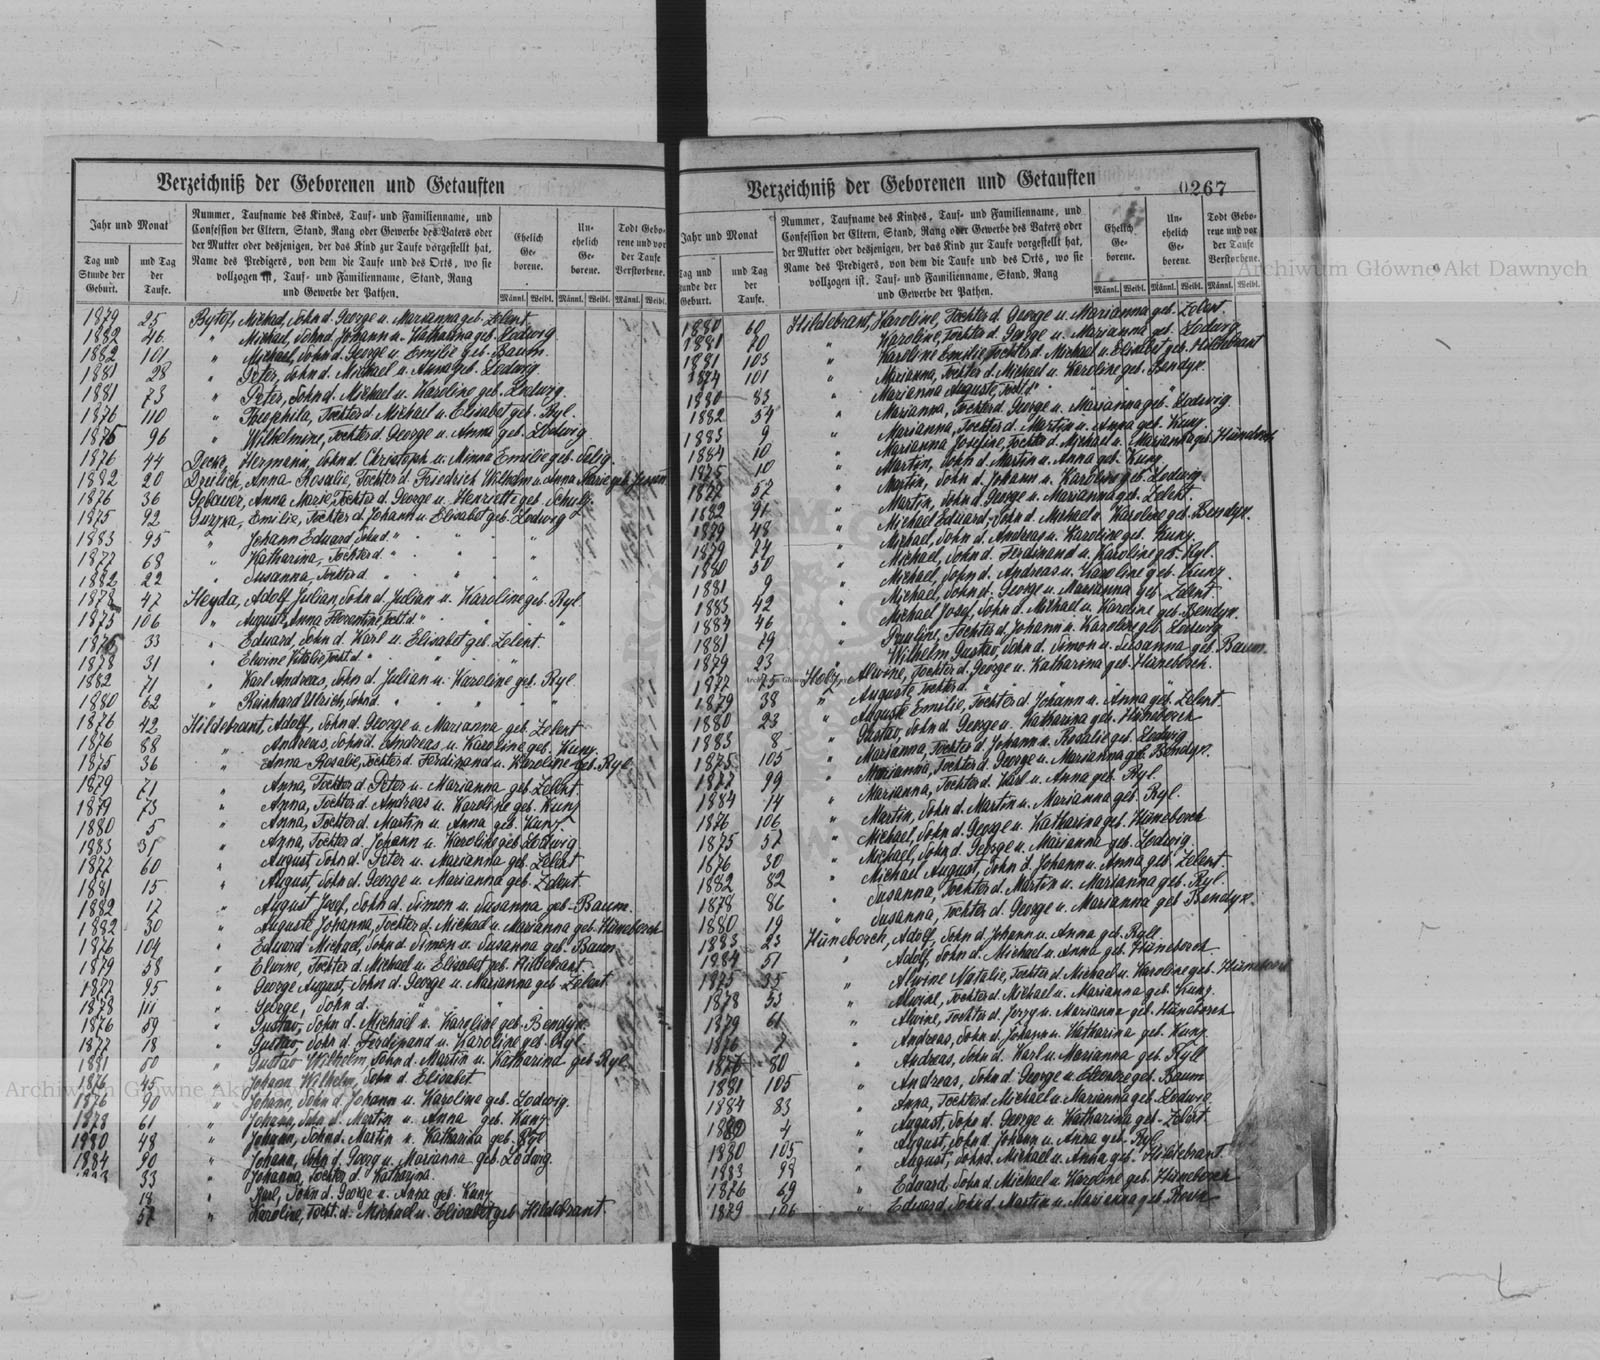 Verzeichniß der Geborenen und Getauften
Jahr und Monat
Tag und Stunde der Geburt.
und Tag der Taufe.
Nummer, Taufname des Kindes, Tauf- und Familienname, und
Confession der Eltern, Stand, Rang oder Gewerbe des Vaters oder
der Mutter oder desjenigen, der das Kind zur Taufe vorgestellt hat,
Name des Predigers, von dem die Taufe und des Orts, wo sie
vollzogen ist, Tauf- und Familienname, Stand, Rang
und Gewerbe der Pathen.
Ehelich Ge- borene.
Un- ehelich Ge- borene.
Todt Gebo- rene und vor der Taufe Verstorbene.
Männl. Weibl. Männl. Weibl. Männl. Weibl.
1879 25 Bytof, Michael, Sohn d. George u. Marianna geb. Zelent.
1882 46 " Michael, Sohn d. Johann u. Katharina geb. Lodwig
1882 101 " Michael, Sohn d. George u. Emilie geb. Baum.
1881 28 " Peter, Sohn d. Michael u. Anna geb. Lodwig.
1881 73 " Peter, Sohn d. Michael u. Karoline geb. Lodwig.
1876 110 " Theophila, Tochter d. Michael u. Elisabet geb. Ryl.
1875 96 " Wilhelmine, Tochter d. George u. Anna geb. Lodwig
1876 44 Hermann, Sohn d. Christoph u. Minna Emilie geb. Selig.
1882 20 Anna Rosalie, Tochter d. Friedrich Wilhelm u. Anna Marie geb.
1876 36 Gebauer, Anna Marie, Tochter d. George u. Henriette geb. Schulz.
1875 92 Emilie, Tochter d. Johann u. Elisabet geb. Lodwig
1883 95 " Johann Eduard, Sohn d. " " " "
1877 68 " Katharina, Tochter d. " " " "
1882 22 " Susanna, Tochter d. " " " "
1878 47 Heyda, Adolf Julian, Sohn d. Julian u. Karoline geb. Ryl
1875 106 " Auguste Anna Florentine, Tocht. d. " " " "
1876 33 " Eduard, Sohn d. Karl u. Elisabet geb. Zelent.
1878 31 " Elwine Natalie, Tocht. d. " " "
1882 71 " Karl Andreas, Sohn d. Julian u. Karoline geb. Ryl
1880 62 " Reinhard Ulrich, Sohn d. " " " "
1876 42 Hildebrant, Adolf, Sohn d. George u. Marianna geb. Zelent
1876 88 " Andreas, Sohn d. Andreas u. Karoline geb. Kuny.
1875 36 " Anna Rosalie, Tochter d. Ferdinand u. Karoline geb. Ryl
1879 71 " Anna, Tochter d. Peter u. Marianna geb. Zelent.
1879 73 " Anna, Tochter d. Andreas u. Karoline geb. Kuny
1880 5 " Anna, Tochter d. Martin u. Anna geb. Kuny
1883 35 " Anna, Tochter d. Johann u. Karoline geb. Lodwig
1877 60 " August, Sohn d. Peter u. Marianna geb. Zelent
1881 15 " August, Sohn d. George u. Marianna geb. Zelent.
1882 17 " August Josef, Sohn d. Simon u. Susanna geb. Baum.
1882 30 " Auguste Johanna, Tochter d. Michael u. Marianna geb. Hüneborch
1876 104 " Eduard Michael, Sohn d. Simon u. Susanna geb. Baum
1879 58 " Elwine, Tochter d. Michael u. Elisabet geb. Hildebrant.
1877 95 " George August, Sohn d. George u. Marianna geb. Zelent
1878 111 " George, Sohn d. " " "
1876 59 " Gustav, Sohn d. Michael u. Karoline geb. Bendyr.
1877 18 " Gustav, Sohn d. Ferdinand u. Karoline geb. Ryl
1881 50 " Gustav Wilhelm, Sohn d. Martin u. Katharina geb. Ryl
1876 45 " Johann Wilhelm, Sohn d. Elisabet
1876 90 " Johann, Sohn d. Johann u. Karoline geb. Lodwig.
1878 61 " Johann, Sohn d. Martin u. Anna geb. Kuny.
1880 48 " Johann, Sohn d. Martin u. Katharina geb. Ryl
1884 90 " Johann, Sohn d. Georg u. Marianna geb. Lodwig.
33 " Johanna, Tochter d. Katharyna.
18 " Karl, Sohn d. George u. Anna geb. Kuny
57 " Karoline, Tocht. d. Michael u. Elisabet geb. Hildebrant.
Verzeichniß der Geborenen und Getauften
0267
Jahr und Monat
Tag und Stunde der Geburt.
und Tag der Taufe.
Nummer, Taufname des Kindes, Tauf- und Familienname, und
Confession der Eltern, Stand, Rang oder Gewerbe des Vaters oder
der Mutter oder desjenigen, der das Kind zur Taufe vorgestellt hat,
Name des Predigers, von dem die Taufe und des Orts, wo sie
vollzogen ist, Tauf- und Familienname, Stand, Rang
und Gewerbe der Pathen.
Ehelich Ge- borene.
Un- ehelich Ge- borene.
Todt Gebo- rene und vor der Taufe Verstorbene.
Männl. Weibl. Männl. Weibl. Männl. Weibl.
1880 60 Hildebrant, Karoline, Tochter d. George u. Marianna geb. Zelent.
1881 70 " Karoline, Tochter d. George u. Marianna geb. Lodwig
1881 103 " Karoline Emilie, Tochter d. Michael u. Elisabet geb. Hildebrant
1874 101 " Marianna, Tochter d. Michael u. Karoline geb. Bendyr.
1880 83 " Marianna Auguste, Tocht. d. " " "
1882 54 " Marianna, Tochter d. George u. Marianna geb. Lodwig.
1883 9 " Marianna, Tochter d. Martin u. Anna geb. Kuny.
1884 10 " Marianna Josefine, Tochter d. Michael u. Marianna geb. Hüneborch
1875 10 " Martin, Sohn d. Martin u. Anna geb. Kuny
1877 57 " Martin, Sohn d. Johann u. Karoline geb. Lodwig
1882 91 " Martin, Sohn d. George u. Marianna geb. Zelent.
1879 48 " Michael Eduard, Sohn d. Michael u. Karoline geb. Bendyr.
1879 74 " Michael, Sohn d. Andreas u. Karoline geb. Kuny.
1880 50 " Michael, Sohn d. Ferdinand u. Karoline geb. Ryl.
1881 9 " Michael, Sohn d. Andreas u. Karoline geb. Kuny
1883 42 " Michael, Sohn d. George u. Marianna geb. Zelent
1884 46 " Michael Josef, Sohn d. Michael u. Karoline geb. Bendyr.
1881 79 " Pauline, Tochter d. Johann u. Karoline geb. Lodwig
1879 23 " Wilhelm Gustav, Sohn d. Simon u. Susanna geb. Baum.
1877 75 Holz, Alwine, Tochter d. George u. Katharina geb. Hüneborch.
1879 38 " Auguste, Tochter d. " " "
1880 23 " Auguste Emilie, Tochter d. Johann u. Anna geb. Zelent.
1883 8 " Gustav, Sohn d. George u. Katharina geb. Hüneborch
1875 105 " Marianna, Tochter d. Johann u. Rosalie geb. Lodwig
1877 99 " Marianna, Tochter d. George u. Marianna geb. Bendyr.
1884 14 " Marianna, Tochter d. Karl u. Anna geb. Ryl
1876 106 " Martin, Sohn d. Martin u. Marianna geb. Ryl.
1875 57 " Michael, Sohn d. George u. Katharina geb. Hüneborch
1876 30 " Michael, Sohn d. George u. Marianna geb. Lodwig
1882 82 " Michael August, Sohn d. Johann u. Anna geb. Zelent.
1878 86 " Susanna, Tochter d. Martin u. Marianna geb. Ryl.
1880 19 " Susanna, Tochter d. George u. Marianna geb. Bendyr.
1883 23 Hüneborch, Adolf, Sohn d. Johann u. Anna geb. Ryll.
1884 51 " Adolf, Sohn d. Michael u. Anna geb. Hüneborch
1875 35 " Alwine Natalie, Tochter d. Michael u. Karoline geb. Hüneborch
1878 53 " Alwine, Tochter d. Michael u. Marianna geb. Kuny.
1879 61 " Alwine, Tochter d. Jerzy u. Marianna geb. Hüneborch
1876 7 " Andreas, Sohn d. Johann u. Katharina geb. Kuny.
1876 80 " Andreas, Sohn d. Karl u. Marianna geb. Ryll
1881 105 " Andreas, Sohn d. George u. Eleonore geb. Baum
1884 83 " Anna, Tochter d. Michael u. Marianna geb. Lodwig
1880 4 " August, Sohn d. George u. Katharina geb. Zelent.
1880 105 " August, Sohn d. Johann u. Anna geb. Ryl
1883 99 " August, Sohn d. Michael u. Anna geb. Hildebrant.
1876 69 " Eduard, Sohn d. Michael u. Karoline geb. Hüneborch
1879 106 " Eduard, Sohn d. Martin u. Marianna geb.
Archiwum Główne Akt Dawnych